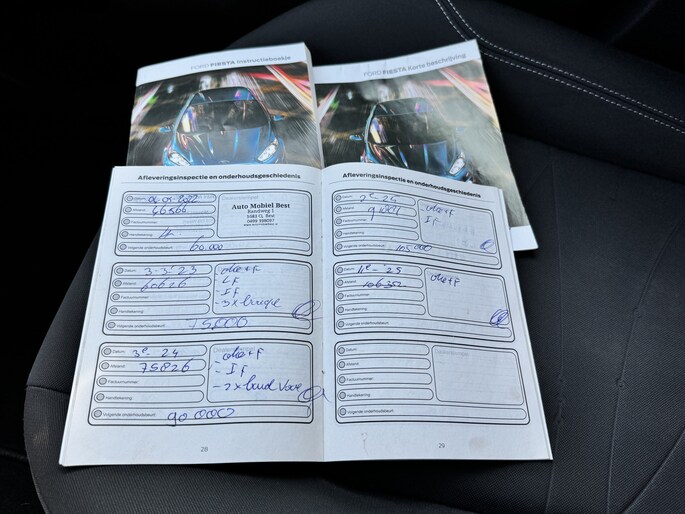 FORD FIESTA Instructieboekje
FORD FIESTA Korte beschrijving
Afleveringsinspectie en onderhoudsgeschiedenis
Datum:
Afstand: 46566
Factuurnummer:
Handtekening:
Volgende onderhoudsbeurt: 60.000
Auto Mobiel Best
Randweg 1
Datum: 3-3-23
Afstand: 60626
Factuurnummer:
Handtekening:
Volgende onderhoudsbeurt: 75000
olie+f
If
Datum: 3e-24
Afstand: 75826
Factuurnummer:
Handtekening:
Volgende onderhoudsbeurt: 90.000
olie+f
- If
28
Afleveringsinspectie en onderhoudsgeschiedenis
Datum:
Afstand:
Factuurnummer:
Handtekening:
Volgende onderhoudsbeurt: 105.000
olie+f
If
Datum:
Afstand: 106352
Factuurnummer:
Handtekening:
Volgende onderhoudsbeurt:
olie+f
Datum:
Afstand:
Factuurnummer:
Handtekening:
Volgende onderhoudsbeurt:
29